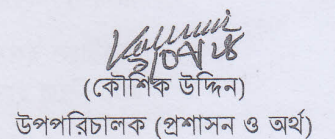 (কৌশিক উদ্দিন)
উপপরিচালক (প্রশাসন ও অর্থ)